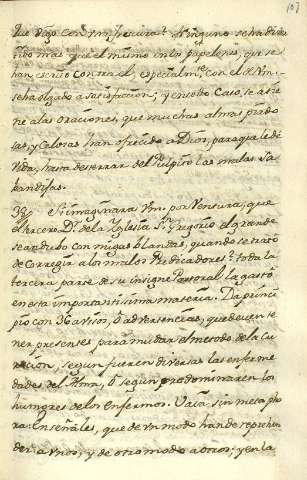 107
que digo con vn frescura. Ninguno se ha di
rido mas que el mismo en los papelones, que se
han escrito contra el, especialmte. con el
se ha olgado a satisfaccion; y en otro caso, se atie
ne a las oraciones, que muchas almas piado
sas, y celosas han ofrecido a Dios, para que le dè
Vida, hasta desterrar del Pulpito las malas Sa
bandijas.
33. Si imaginara Vm. por Ventura, que
el tercero Dr. de la Yglesia Sn. Gregorio el grande
se anduvo con migas blandas, quando se tratò
de Corregir a los malos Predicadores? toda la
tercera parte de su insigne Pastoral la gastò
en esta importantisima materia. Dà princi
pio con 36 avisos, ò advertencias, que deven te
ner presentes para mudar el metodo de la Cu
racion, segun fueren diversas las enferme
dades del Alma, ò segun predominaren los
humores de los enfermos. Vaya sin metapho
ra: Enseñales, que de vn modo han de reprehen
der a vnos, y de otro modo a otros; y en la